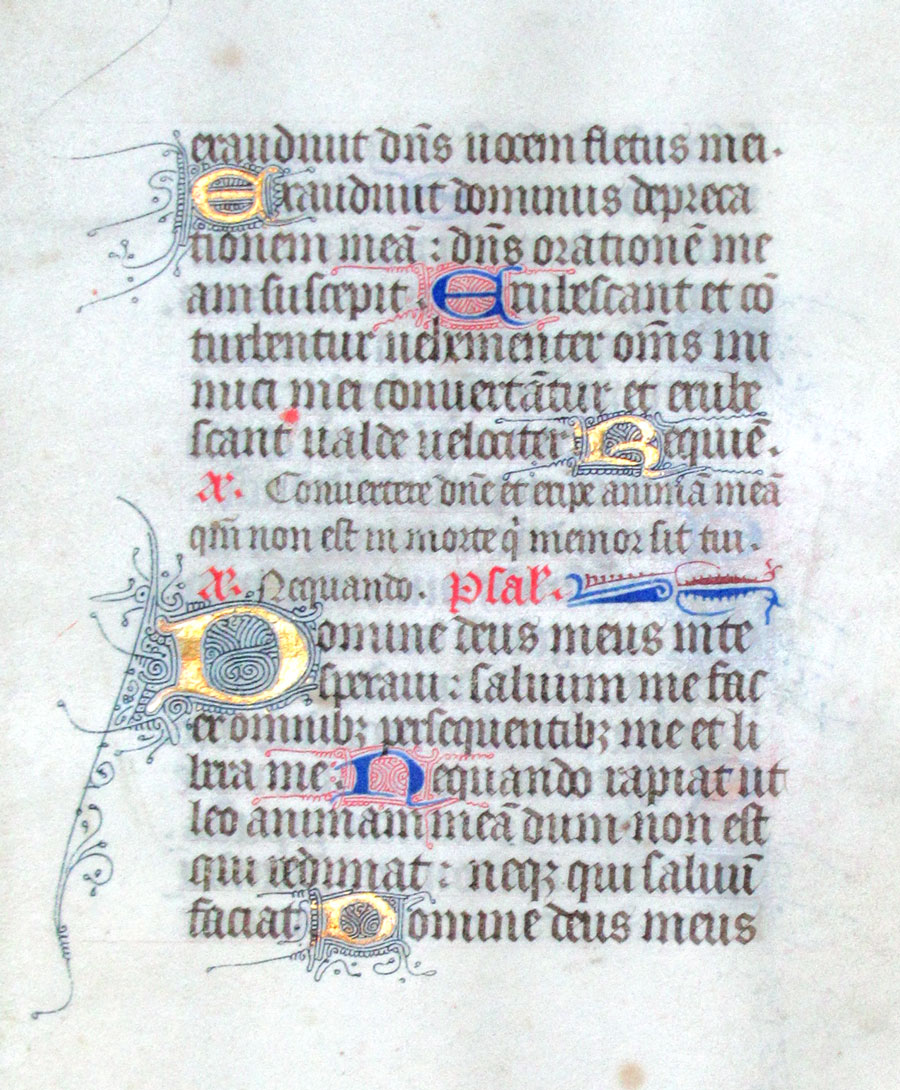 exaudivit dn̄s vocem fletus mei.
Exaudivit dominus depreca
tionem meā : dn̄s orationē me
am suscepit. Erubescant et cō
turbentur vehementer om̄s ini
mici mei convertātur et erube
scant valde velociter Requiē.
a͞. Convertere dn̄e et eripe animā meā
qm̄ non est in morte qͥ memor sit tui.
a͞. Nequando. Psal'.
Domine deus meus in te
speravi : salvum me fac
ex omnibꝫ persequentibꝫ me et li
bera me. Nequando rapiat ut
leo animam meā dum non est
qui redimat : neqꝫ qui salvū
faciat Domine deus meus